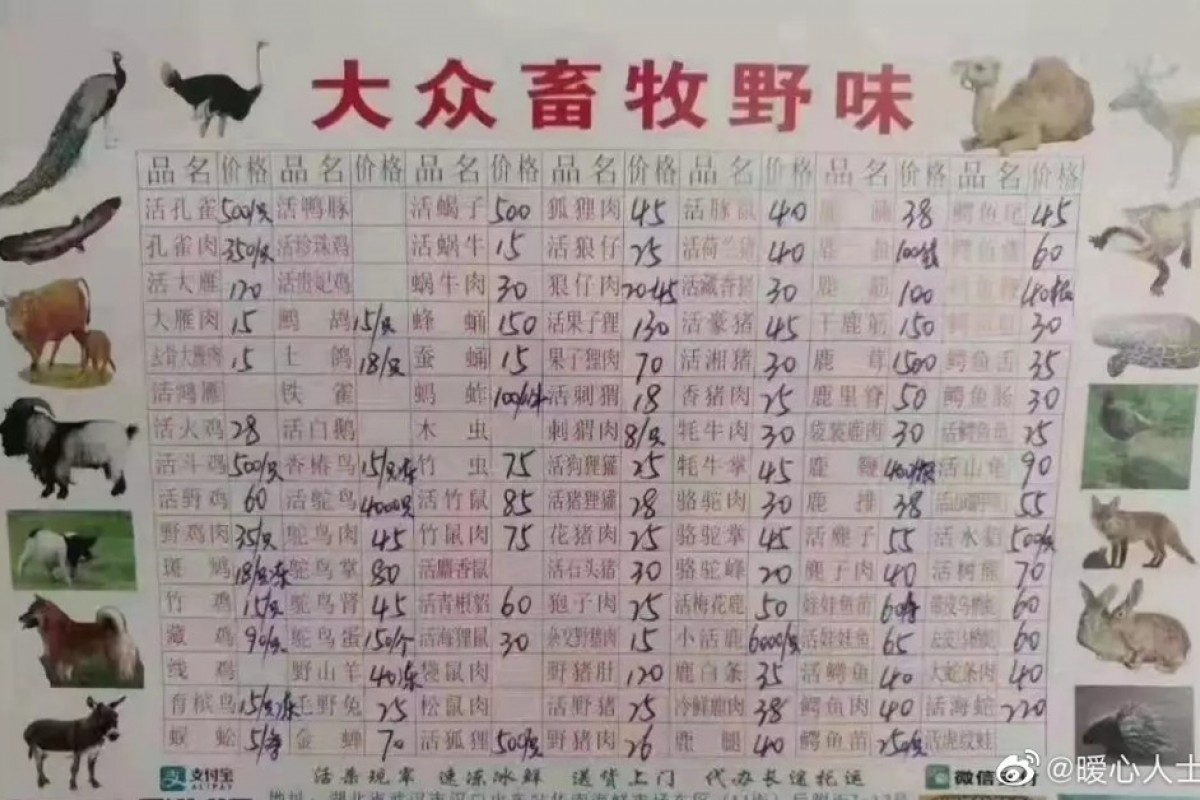 大众畜牧野味
品名 价格 品名 价格 品名 价格 品名 价格 品名 价格 品名 价格 品名 价格
活孔雀 500/只 活鸭豚 活蝎子 500 狐狸肉 45 活豚鼠 40 38 鳄鱼尾 45
孔雀肉 350/只 活珍珠鸡 活蜗牛 15 活狼仔 25 活荷兰猪 40 60
活大雁 120 活贵妃鸡 蜗牛肉 30 狼仔肉 20-45 活藏香猪 30 鹿筋 100
大雁肉 15 鹧鸪 15/只 蜂蛹 150 活果子狸 130 活豪猪 45 干鹿筋 150 30
15 土鸽 18/只 蚕蛹 15 果子狸肉 70 活湘猪 30 鹿茸 1500 鳄鱼舌 35
活鸿雁 铁雀 蚂蚱 活刺猬 18 香猪肉 25 鹿里脊 50 鳄鱼肠 30
活火鸡 28 活白鹅 木虫 刺猬肉 8/只 牦牛肉 30 袋装鹿肉 30 活鳄鱼龟 25
活斗鸡 500/只 香椿鸟 15/只冻 竹虫 75 活狗狸獾 25 牦牛掌 45 鹿鞭 活山龟 90
活野鸡 60 活鸵鸟 4000/只 活竹鼠 85 活猪狸獾 28 骆驼肉 30 鹿排 38 55
野鸡肉 35/只 鸵鸟肉 45 竹鼠肉 75 花猪肉 25 骆驼掌 45 活麂子 55 活水貂 500/只
斑鸠 18/只冻 鸵鸟掌 80 活麝香鼠 活石头猪 30 骆驼峰 20 麂子肉 40 活树熊 70
竹鸡 15/只 鸵鸟肾 45 活青根貂 60 狍子肉 25 活梅花鹿 50 娃娃鱼苗 60
藏鸡 90/只 鸵鸟蛋 150/个 活海狸鼠 30 杂交野猪肉 15 小活鹿 6000/只 活娃娃鱼 65 60
线鸡 野山羊 40冻 袋鼠肉 野猪肚 120 鹿白条 35 活鳄鱼 40 大蛇条肉 40
育槟鸟 15/只冻 毛野兔 25 松鼠肉 活野猪 25 冷鲜鹿肉 38 鳄鱼肉 40 活海蛇 220
蜈蚣 金蝉 70 活狐狸 500/只 野猪肉 26 鹿腿 40 鳄鱼苗 活虎纹蛙
支付宝 ALIPAY 活杀现宰 速冻冰鲜 送货上门 代办长途托运 微信
@暖心人士